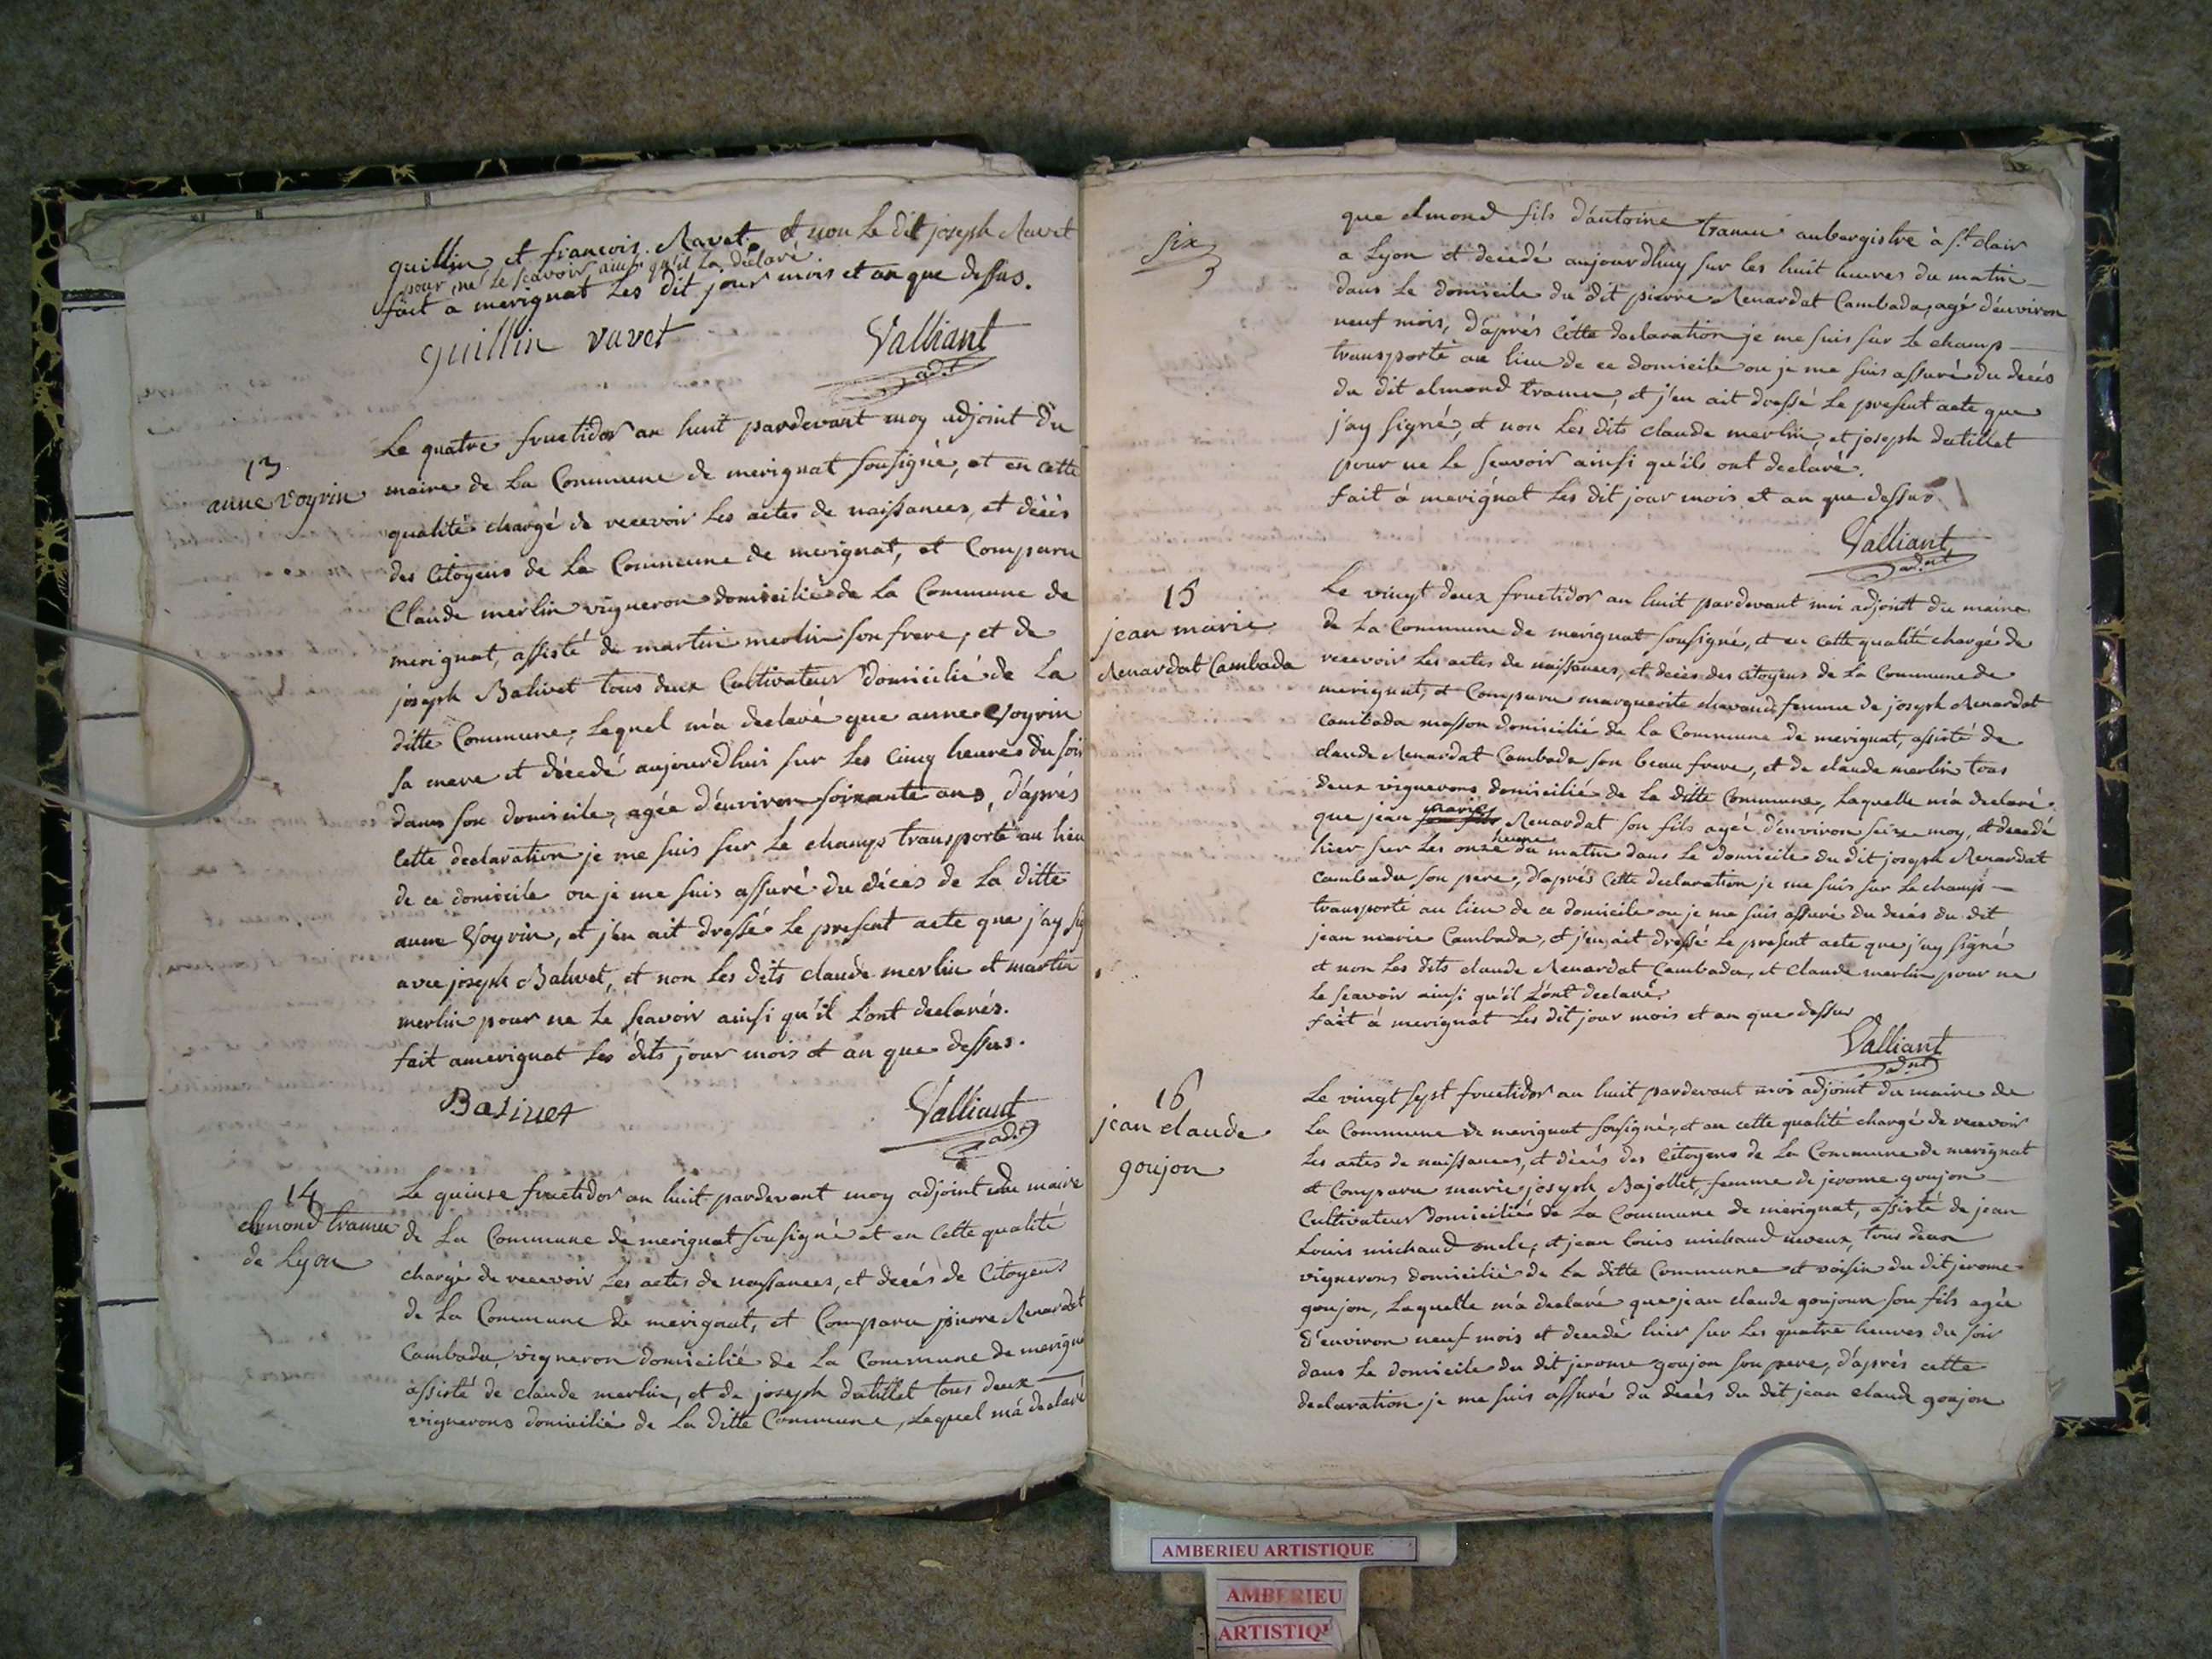 guillin, et françois Ravet, et non le dit joseph Ravet
pour ne le scavoir ainsi qu'il la déclaré.
fait a merignat les dit jour mois et an que dessus.
guillin ravet Valliant
adt
13
anne voyrin
Le quatre fructidor an huit pardevant moy adjoint du
maire de la Commune de merignat sousigné, et en cette
qualité chargé de recevoir les actes de naissances, et décès
des Citoyens de la Commune de merignat, et Comparu
Claude merlin vigneron domicilié de la Commune de
merignat, assisté de martin merlin son frere, et de
joseph Balivet tous deux Cultivateur domicilié de La
ditte Commune, Lequel m'a declaré que anne Voyrin
sa mere et décedé aujourdhui sur les cinq heures du soir
dans son domicile, agée d'environ soixante ans, d'aprés
cette declaration je me suis sur le champs transporté au lieu
de ce domicile ou je me suis assuré du décès de La ditte
anne Voyrin, et j'en ait dressé le present acte que j'ay sig
avec joseph Balivet, et non les dits claude merlin et martin
merlin pour ne le scavoir ainsi qu'il l'ont declarés.
fait a merignat les dits jour mois et an que dessus.
Balivet Valliant
adt
14
elmond tramu
de Lyon
Le quinse fructidor an huit pardevant moy adjoint du maire
de La Commune de merignat sousigné et en cette qualité
chargé de recevoir les actes de naissances, et decés de Citoyens
de La Commune de merignat, et Comparu pierre Renardat
Cambada, vigneron domicilié de La Commune de merigna
assisté de claude merlin, et de joseph dutillet tous deux
vignerons domicilié de La ditte Commune, Lequel m'a declaré
six
que elmond fils d'antoine tramu aubergistre à St clair
a Lyon et decédé aujourdhuy sur les huit heures du matin
dans le domicile du dit pierre Renardat Cambada, agé d'environ
neuf mois, d'aprés cette declaration je me suis sur le champ
transporté au lieu de ce domicile ou je me suis assuré du decés
du dit elmond tramu, et j'en ait dressé le present acte que
j'ay signé, et non les dits claude merlin, et joseph dutillet
pour ne le scavoir ainsi qu'ils ont declaré.
fait à merignat les dit jour mois et an que dessus
Valliant
adnt
15
jean marie
Renardat Cambada
Le vingt deux fructidor an huit pardevant moi adjoint du maire
de La Commune de merignat sousigné, et en cette qualité chargé de
recevoir les actes de naissances, et decés des citoyens de La Commune de
merignat, et Comparu marguerite chavand femme de joseph Renardat
Cambada masson domicilié de la Commune de merignat, assisté de
claude Renardat Cambada son beau frere, et de claude merlin tous
deux vignerons domicilié de La ditte Commune, Laquelle m'a declaré
que jean marie Renardat son fils agée d'environ seize moy, et decedé
hier sur les onze heure du matin dans le domicile du dit joseph Renardat
cambada son pere, d'aprés cette declaration je me suis sur le champs
transporté au lieu de ce domicile ou je me suis assuré du decés du dit
jean marie Cambada, et j'en ait dressé le present acte que j'ay signé
et non les dits claude Renardat Cambada, et Claude merlin pour ne
le scavoir ainsi qu'il l'ont declaré.
fait à merignat les dit jour mois et an que dessus
Valliant
adnt
16
jean claude
goujon
Le vingt sept fructidor an huit pardevant moi adjoint du maire de
La Commune de merignat sousigné, et en cette qualité chargé de recevoir
les actes de naissances, et décés des Citoyens de La Commune de merignat
et Comparu marie joseph Bajollet, femme de jerome goujon
Cultivateur domicilié de La Commune de merignat, assisté de jean
Louis michaud oncle, et jean Louis michaud neveux, tous deux
vignerons domicilié de La ditte Commune et voisin du dit jerome
goujon, Laquelle m'a declaré que jean claude goujon son fils agée
d'environ neuf mois et decedé hier sur les quatre heures du soir
dans le domicile du dit jerome goujon son pere, d'aprés cette
declaration je me suis assuré du decés du dit jean claude goujon
AMBERIEU ARTISTIQUE
AMBERIEU
ARTISTIQ